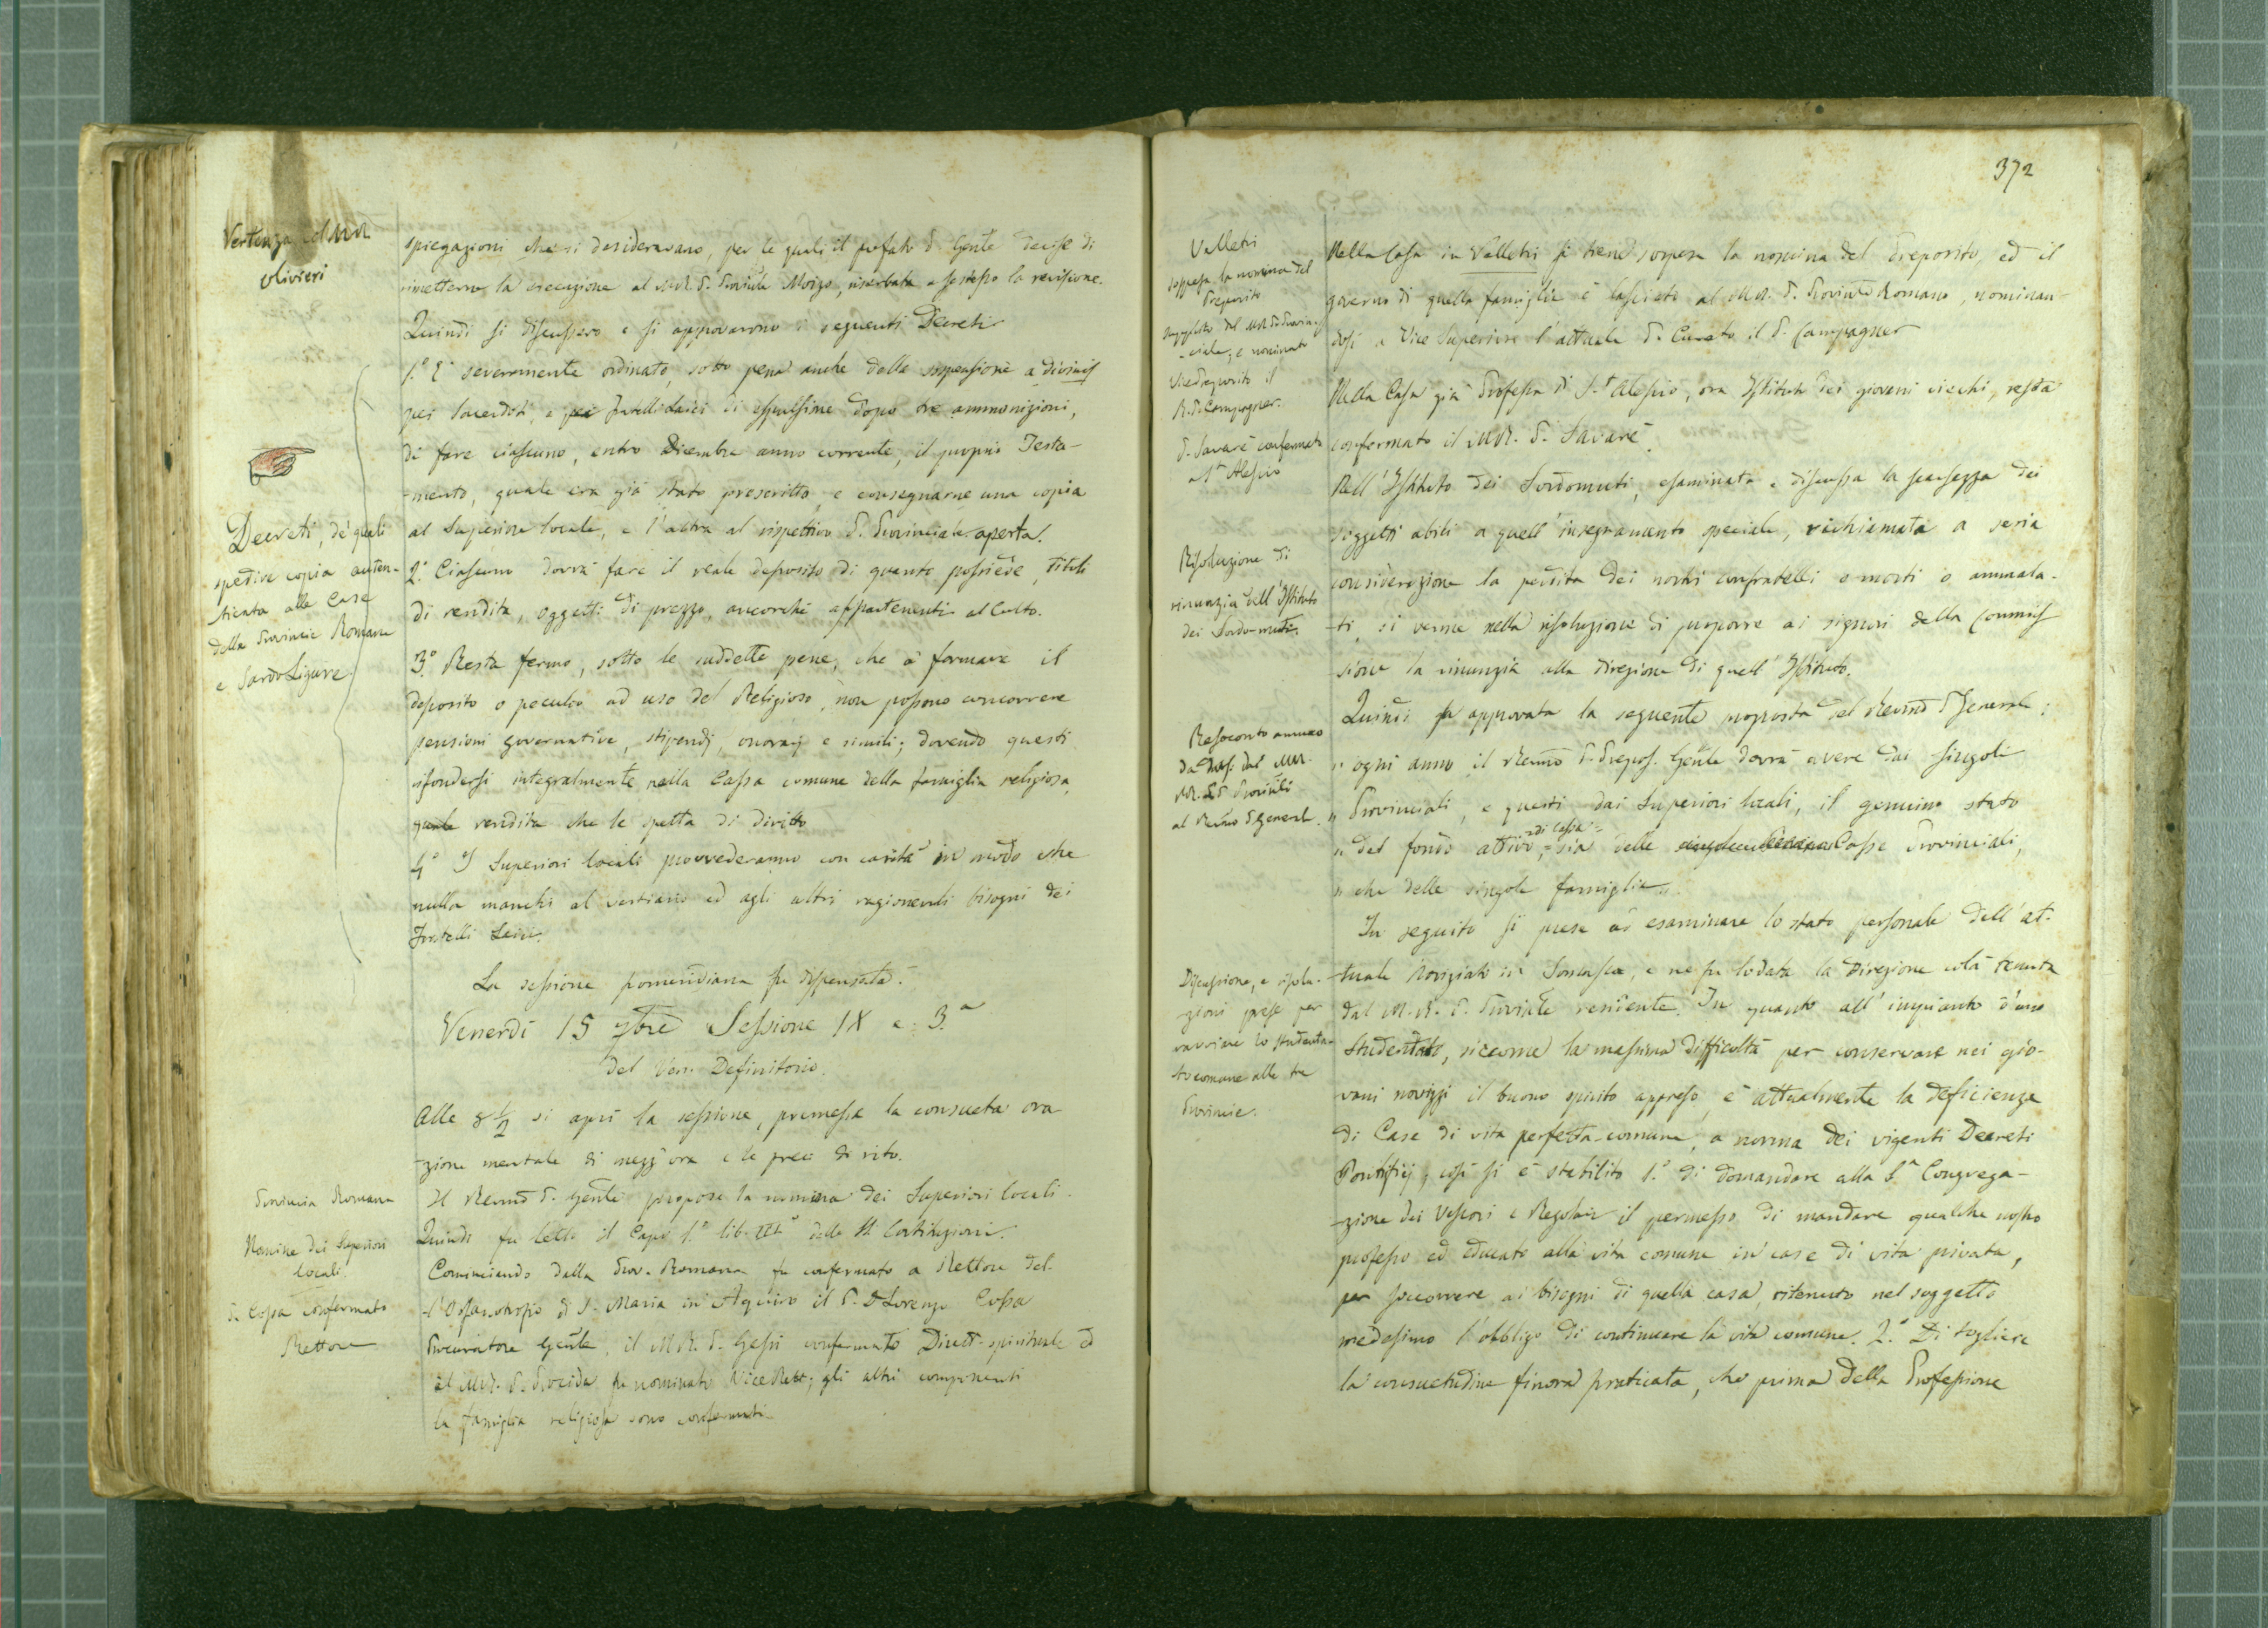 Vertenza col MR
Olivieri
spiegazioni che si desideravano, per le quali il prefato P. Gente decise di
rimetterne la esecuzione al MR. P. Provinle Moizo, riserbata a se stesso la revisione.
Quindi si discussero e si approvarono i seguenti Decreti
1.° E' severamente ordinato, sotto pena anche della sospensione a divinis
pei Sacerdoti, e pei Fratelli Laici di espulsione dopo tre ammonizioni,
di fare ciascuno, entro Dicembre anno corrente, il proprio Testa-
-mento, quale era già stato prescritto, e consegnarne una copia
al Superiore locale, e l'altra al rispettivo P. Provinciale aperta.
2.° Ciascuno dovrà fare il reale deposito di quanto possiede, titoli
di rendita, oggetti di prezzo, ancorchè appartenenti al Culto.
3.° Resta fermo, sotto le suddette pene, che a formare il
deposito o peculio ad uso del Religioso, non possono concorrere
pensioni governative, stipendj, onorarj e simili; dovendo questi
rifondersi integralmente nella Cassa comune della famiglia religiosa,
quale rendita che le spetta di diritto
4.° I Superiori locali provvederanno con carità in modo che
nulla manchi al vestiario ed agli altri ragionevoli bisogni dei
Fratelli Laici.
Decreti, de' quali
spedire copia auten-
ticata alle Case
della Provincia Romana
e Sardo Ligure.
La sessione pomeridiana fu dispensata.
Venerdì 15 7bre Sessione IX e 3.a
del Ven. Definitorio.
Alle 8 1/2 si aprì la sessione, premessa la consueta ora
-zione mentale di mezz'ora e le preci di rito.
Provincia Romana
Il Revmo P. Gente propose la nomina dei Superiori locali.
Nomine dei Superiori
locali
Quindi fu letto il Capo 1.° lib. III° delle SS. Costituzioni.
Cominciando dalla Prov. Romana fu confermato a Rettore del-
l'Orfanotrofio di S. Maria in Aquiro il P. D Lorenzo Cossa
P. Cossa confermato
Rettore
Procuratore Gente, il MR. P. Gessi confermato Dirett. spirituale ed
il MR. P. Procida fu nominato Vice Rett; gli altri componenti
la famiglia religiosa sono confermati
372
Velletri
sospesa la nomina del
Preposito
supplito dal MR. P. Provin-
-ciale; e nominato
Vicepreposito il
R. P. Campagner.
Nella Casa in Velletri si tiene sospesa la nomina del Preposito, ed il
governo di quella famiglia è lasciato al MR. P. Provinle Romano, nominan-
dosi a Vice Superiore l'attuale P. Curato il P. Campagner
P. Savarè confermato
a St Alessio
Nella Casa già Professa di S.t Alessio, ora Istituto dei giovani ciechi, resta
confermato il MR. P. Savarè.
Risoluzione di
rinunzia all'Istituto
dei Sordo-muti.
Nell'Istituto dei Sordomuti, esaminata e discussa la scarsezza dei
soggetti abili a quell'insegnamento speciale, richiamata a seria
considerazione la perdita dei nostri confratelli o morti o ammala-
-ti, si venne nella risoluzione di proporre ai signori della Commis
sione la rinunzia alla direzione di quell'Istituto.
Resoconto annuo
da darsi dai MM.
RR. PP. Provinli
al Revmo P. General.
Quindi fu approvata la seguente proposta del Revmo P General:
" ogni anno il Revmo P. Prepos. Gente dovrà avere dai singoli
" Provinciali, e questi dai Superiori locali, il genuino stato
" del fondo attivo, =di cassa= sia delle Casse Provinciali,
" che delle singole famiglie".
Discussione, e risolu-
zioni prese per
avviare lo studenta-
to comune alle tre
Provincie.
In seguito si prese ad esaminare lo stato personale dell'at-
-tuale Noviziato in Somasca, e ne fu lodata la direzione colà tenuta
dal M. R. P. Provinle residente. In quanto all'impianto d'uno
Studentato, siccome la massima difficoltà per conservare nei gio-
vani novizzi il buono spirito appreso, è attualmente la deficienza
di Case di vita perfetta-comune, a norma dei vigenti Decreti
Pontificj; così si è stabilito 1.° di domandare alla S.a Congrega-
-zione dei Vescovi e Regolari il permesso di mandare qualche nostro
professo ed educato alla vita comune in case di vita privata,
per soccorrere ai bisogni di quella casa, ritenuto nel soggetto
medesimo l'obbligo di continuare la vita comune. 2.° Di togliere
la consuetudine finora praticata, che prima della Professione